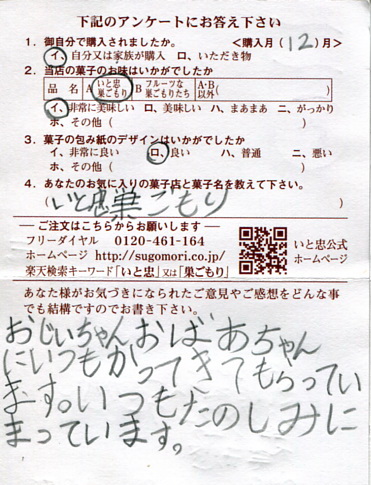 下記のアンケートにお答え下さい
1．御自分で購入されましたか。 ＜購入月（12）月＞
イ、自分又は家族が購入 ロ、いただき物
2．当店の菓子のお味はいかがでしたか
品 名 A いと忠巣ごもり B フルーツな巣ごもりたち A・B以外（ ）
イ、非常に美味しい ロ、美味しい ハ、まあまあ ニ、がっかり
ホ、その他（ ）
3．菓子の包み紙のデザインはいかがでしたか
イ、非常に良い ロ、良い ハ、普通 ニ、悪い
ホ、その他（ ）
4．あなたのお気に入りの菓子店と菓子名を教えて下さい。
（いと忠巣ごもり ）
―ご注文はこちらからお願いします―
フリーダイヤル 0120-461-164
ホームページ http://sugomori.co.jp/
楽天検索キーワード「いと忠」又は「巣ごもり」
いと忠公式
ホームページ
あなた様がお気づきになられたご意見やご感想をどんな事
でも結構ですのでお書き下さい。
おじいちゃんおばあちゃん
にいつもかってきてもらってい
ます。いつもたのしみに
まっています。